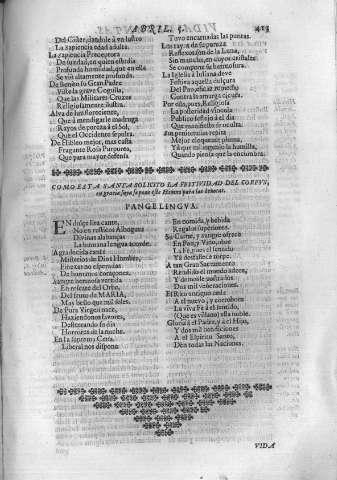 ABRIL. 5. 413
Del Cister, dandole à su lustro
La sapiencia edad adulta.
La sapiencia Preceptora
De su edad, en quien estudia
Profunda humildad, que en ella
Se viò altamente profunda.
De Benito su Gran Padre
Viste la grave Cogulla,
Que las Militares Cruzes
Religiosamente ilustra.
Alva de luz floreciente,
Que à mendigar le madruga
Rayos de pureza à el Sol,
Què el Occidente sepulta.
De Hibleo mejor, mas casta
Fragante Rosa Purpurea,
Que para mayor defensa
Tuvo encarnadas las puntas.
Los rayos de su pureza
Reflexos son de la Luna,
Sin mancha, en cuyos cristales
Se compone su hermosura.
La Iglesia à Juliana deve
Festiva aquella dulçura
Del Pan, eficaz remedio
Contra la amarga cicuta.
Por ella, pues, Religiosa
La posteridad vincula
Publico festejo à el dia
Que manifiesta se oculta.
Sin pensiones lo repita
Mejor eloquente pluma,
Yà que mi ingenio la humilla,
Quando piensa que la encumbra.
COMO ESTA SANTA SOLICITO LA FESTIVIDAD DEL CORPUS,
en gracia suya se pone este Himno para los devotos.
PANGE LINGUA.
EN dulçe lira cante,
No en rusticos Albogues
Divinas alabanças
La humana lengua acorde.
Agradecida cante
Misterios de Dios Hombre,
Finezas no esperadas
De humanos coraçones.
Sangre hermosa vertida
En rescate del Orbe,
Del fruto de MARIA,
Mas bello que mil soles.
De Pura Virgen nace,
Haziendonos favores,
Desterrando su dia
Horrores de la noche.
En la suprema Cena,
Liberal nos dispone
En comida, y bebida
Regalos superiores.
Su Carne, y sangre ofrece
En Pan, y Vino, obre
La Fè, pues el sentido
Yà desfallece torpe.
A tan Gran Sacramento
Rendido el mundo adore,
Y de mosle postrados
Dos mil veneraciones.
El Rito antiguo ceda
A el nuevo, y corrobore
La viva Fè à el sentido,
(Que es villano) ella noble.
Gloria à el Padre, y à el Hijo,
Y dos mil bendiciones
A el Espiritu Santo,
Den todas las Naciones.
VIDA